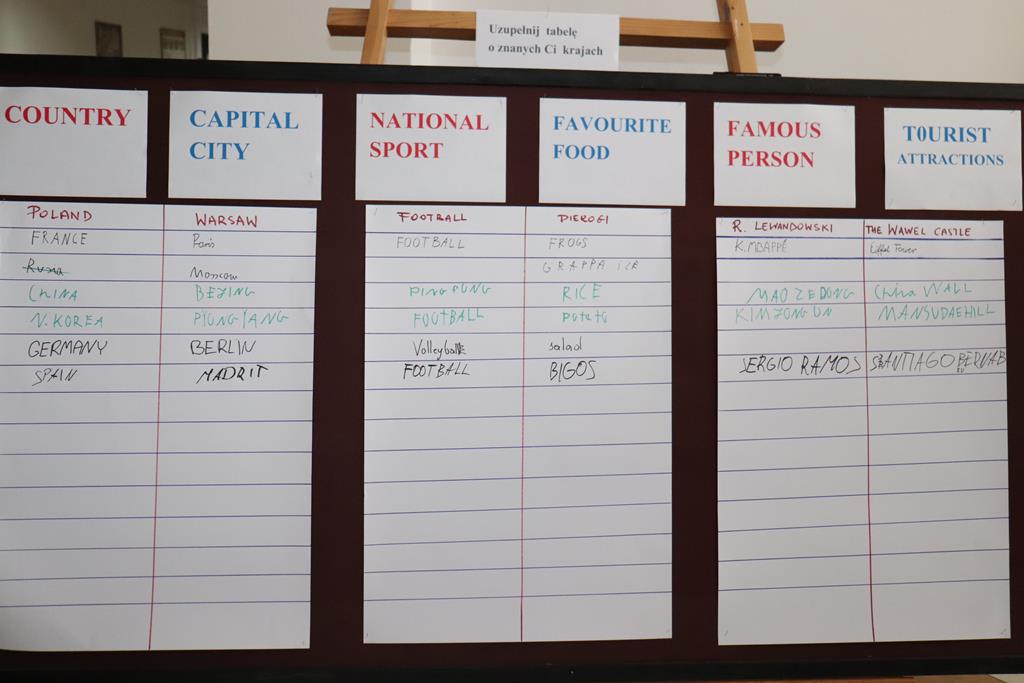 Uzupełnij tabelę
o znanych Ci krajach
COUNTRY
CAPITAL
CITY
NATIONAL
SPORT
FAVOURITE
FOOD
FAMOUS
PERSON
T0URIST
ATTRACTIONS
POLAND WARSAW FOOTBALL PIEROGI R. LEWANDOWSKI THE WAWEL CASTLE
FRANCE Paris FOOTBALL FROGS K.MBAPPÉ Eiffel Tower
Moscow GRAPPA
CHINA BEJING PING PONG RICE MAO ZEDONG China WALL
N. KOREA PYONGYANG FOOTBALL potato KIM JONG UN MANSUDAE HILL
GERMANY BERLIN Volleyball salad
SPAIN MADRIT FOOTBALL BIGOS SERGIO RAMOS SANTIAGO BERNAB
EU